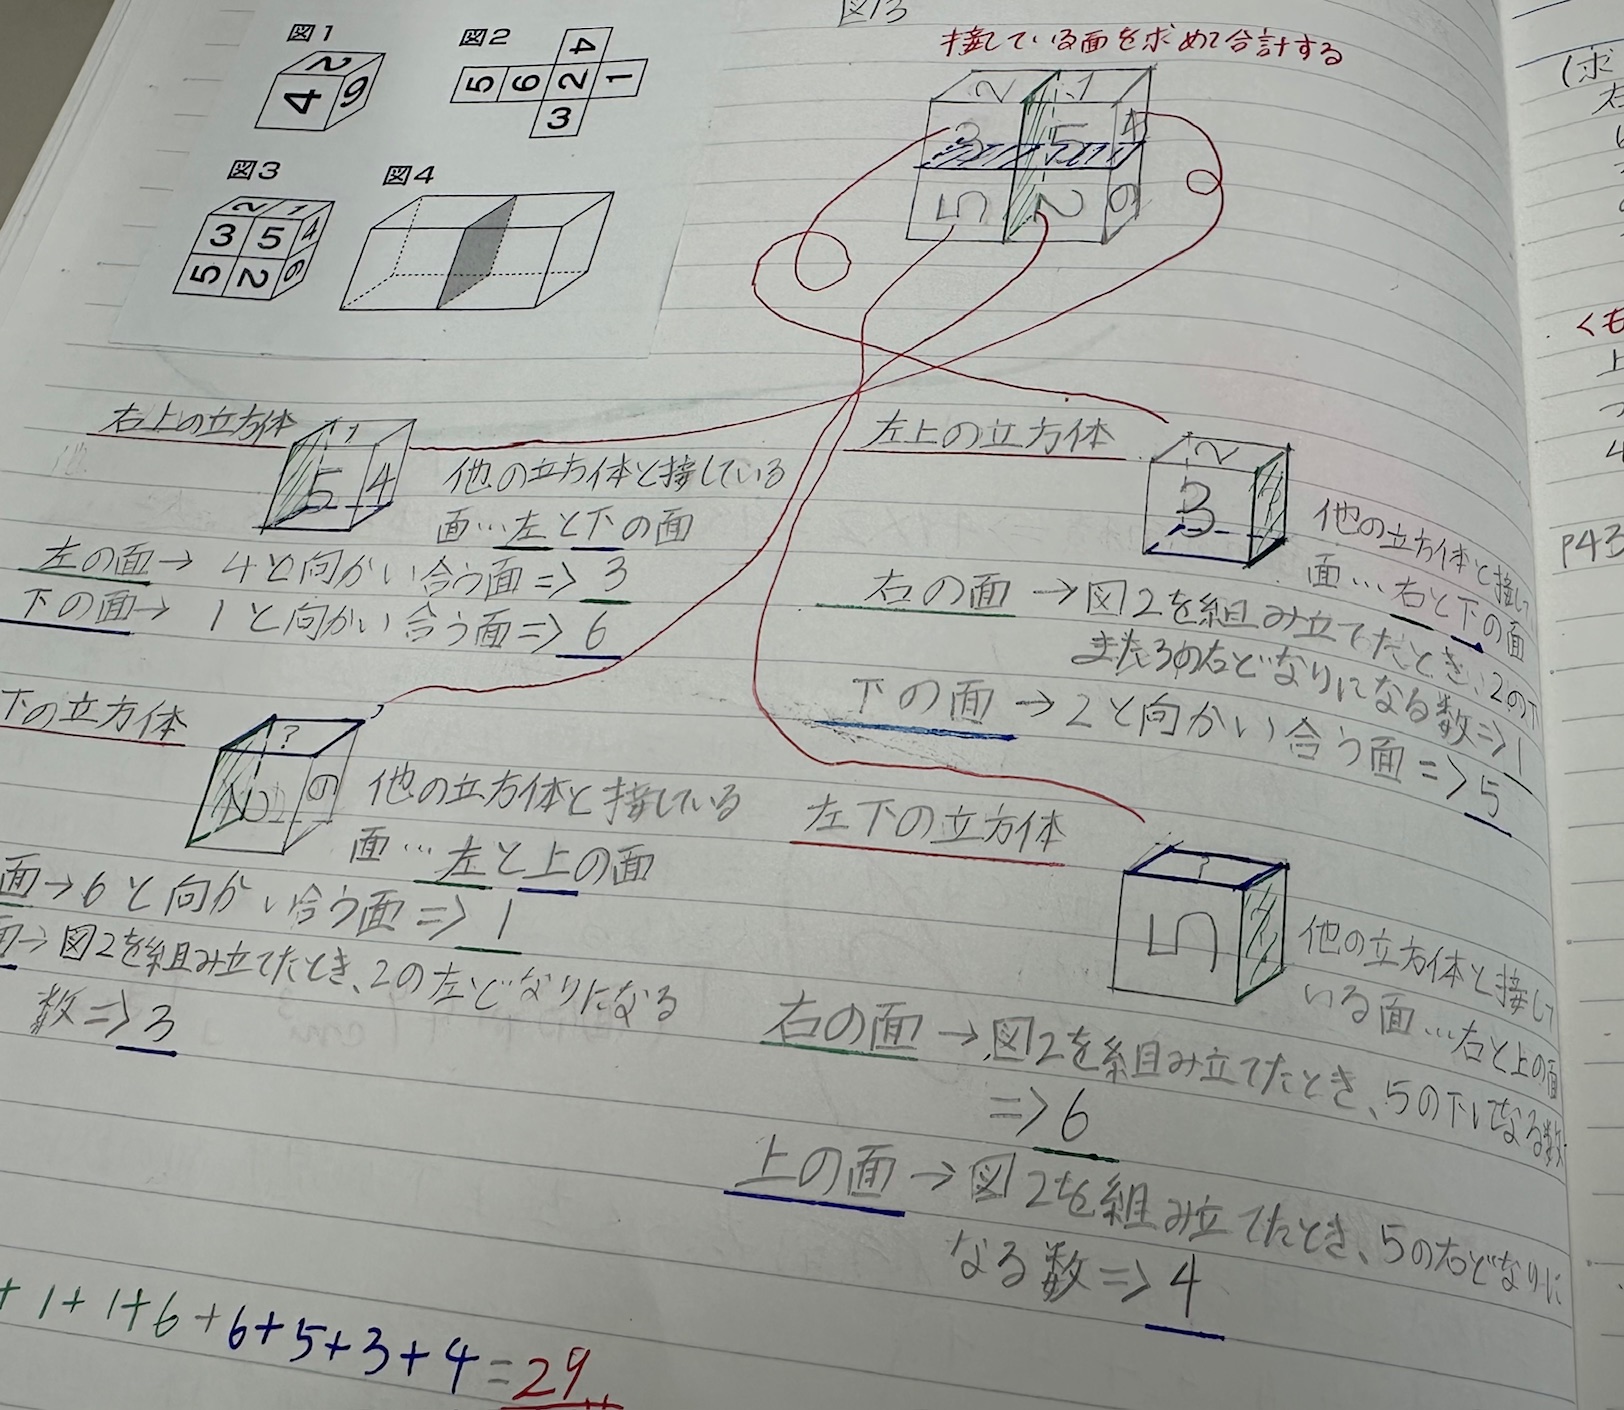 図13
接している面を求めて合計する
図1
2
4
6
図2
4
5 6 2 1
3
図3
2 1
3 5 4
5 2 6
図4
2 1
3 5 4
5 2 6
右上の立方体
1
5 4
他の立方体と接している
面…左と下の面
左の面→ 4と向かい合う面⇒3
下の面→ 1と向かい合う面⇒6
左上の立方体
2
3 ?
他の立方体と接して
面…右と下の面
右の面→図2を組み立てたとき、2の下
また3の右どなりになる数⇒1
下の面→2と向かい合う面⇒5
下の立方体
?
2 6
他の立方体と接している
面…左と上の面
面→6と向かい合う面⇒1
面→図2を組み立てたとき、2の左どなりになる
数⇒3
左下の立方体
?
5 ?
他の立方体と接して
いる面…右と上の面
右の面→図2を組み立てたとき、5の下になる数
⇒6
上の面→図2を組み立てたとき、5の右どなりに
なる数⇒4
+1+1+6+6+5+3+4=29
(求
右
<も
上
P43